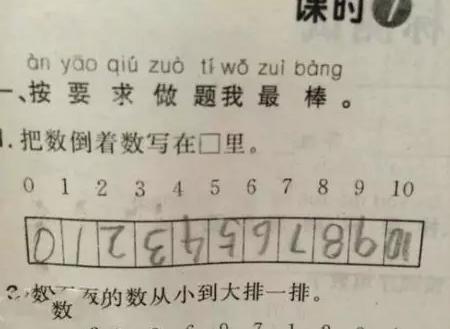 课时 7
àn yāo qiú zuò tí wǒ zuì bàng
一、按要求做题我最棒。
1.把数倒着数写在□里。
0 1 2 3 4 5 6 7 8 9 10
0 1 2 3 4 5 6 7 8 9 10
数 的数从小到大排一排。
数